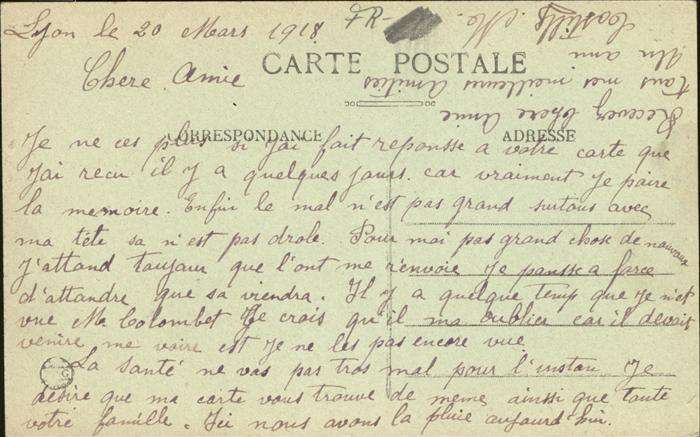 Lyon le 20 Mars 1918
FR-
CARTE POSTALE
Chere Amie
CORRESPONDANCE
ADRESSE
Je ne ces plus si j'ai fait reponsse a votre carte que
j'ai recu il y a quelques jours. car vraiment je paire
la memoire. Enfin le mal n'est pas grand surtous avec
ma tête sa n'est pas drole. Pour moi pas grand chose de nouveau
J'attand toujour que l'ont me renvoie je pansse a force
d'attandre que sa viendra. Il y a quelque temp que je n'ést
vue M. Colombet Je crois qu'il ma oublier car il devait
venire me voire est je ne les pas encore vue
La santé ne vas pas tros mal pour l'instan. Je
désire que ma carte vous trouve de meme ainsi que toute
votre famille. Ici nous avons la pluie aujourd'hui.
Recevez chere Amie
tous mes meilleures Amitiés
Un ami